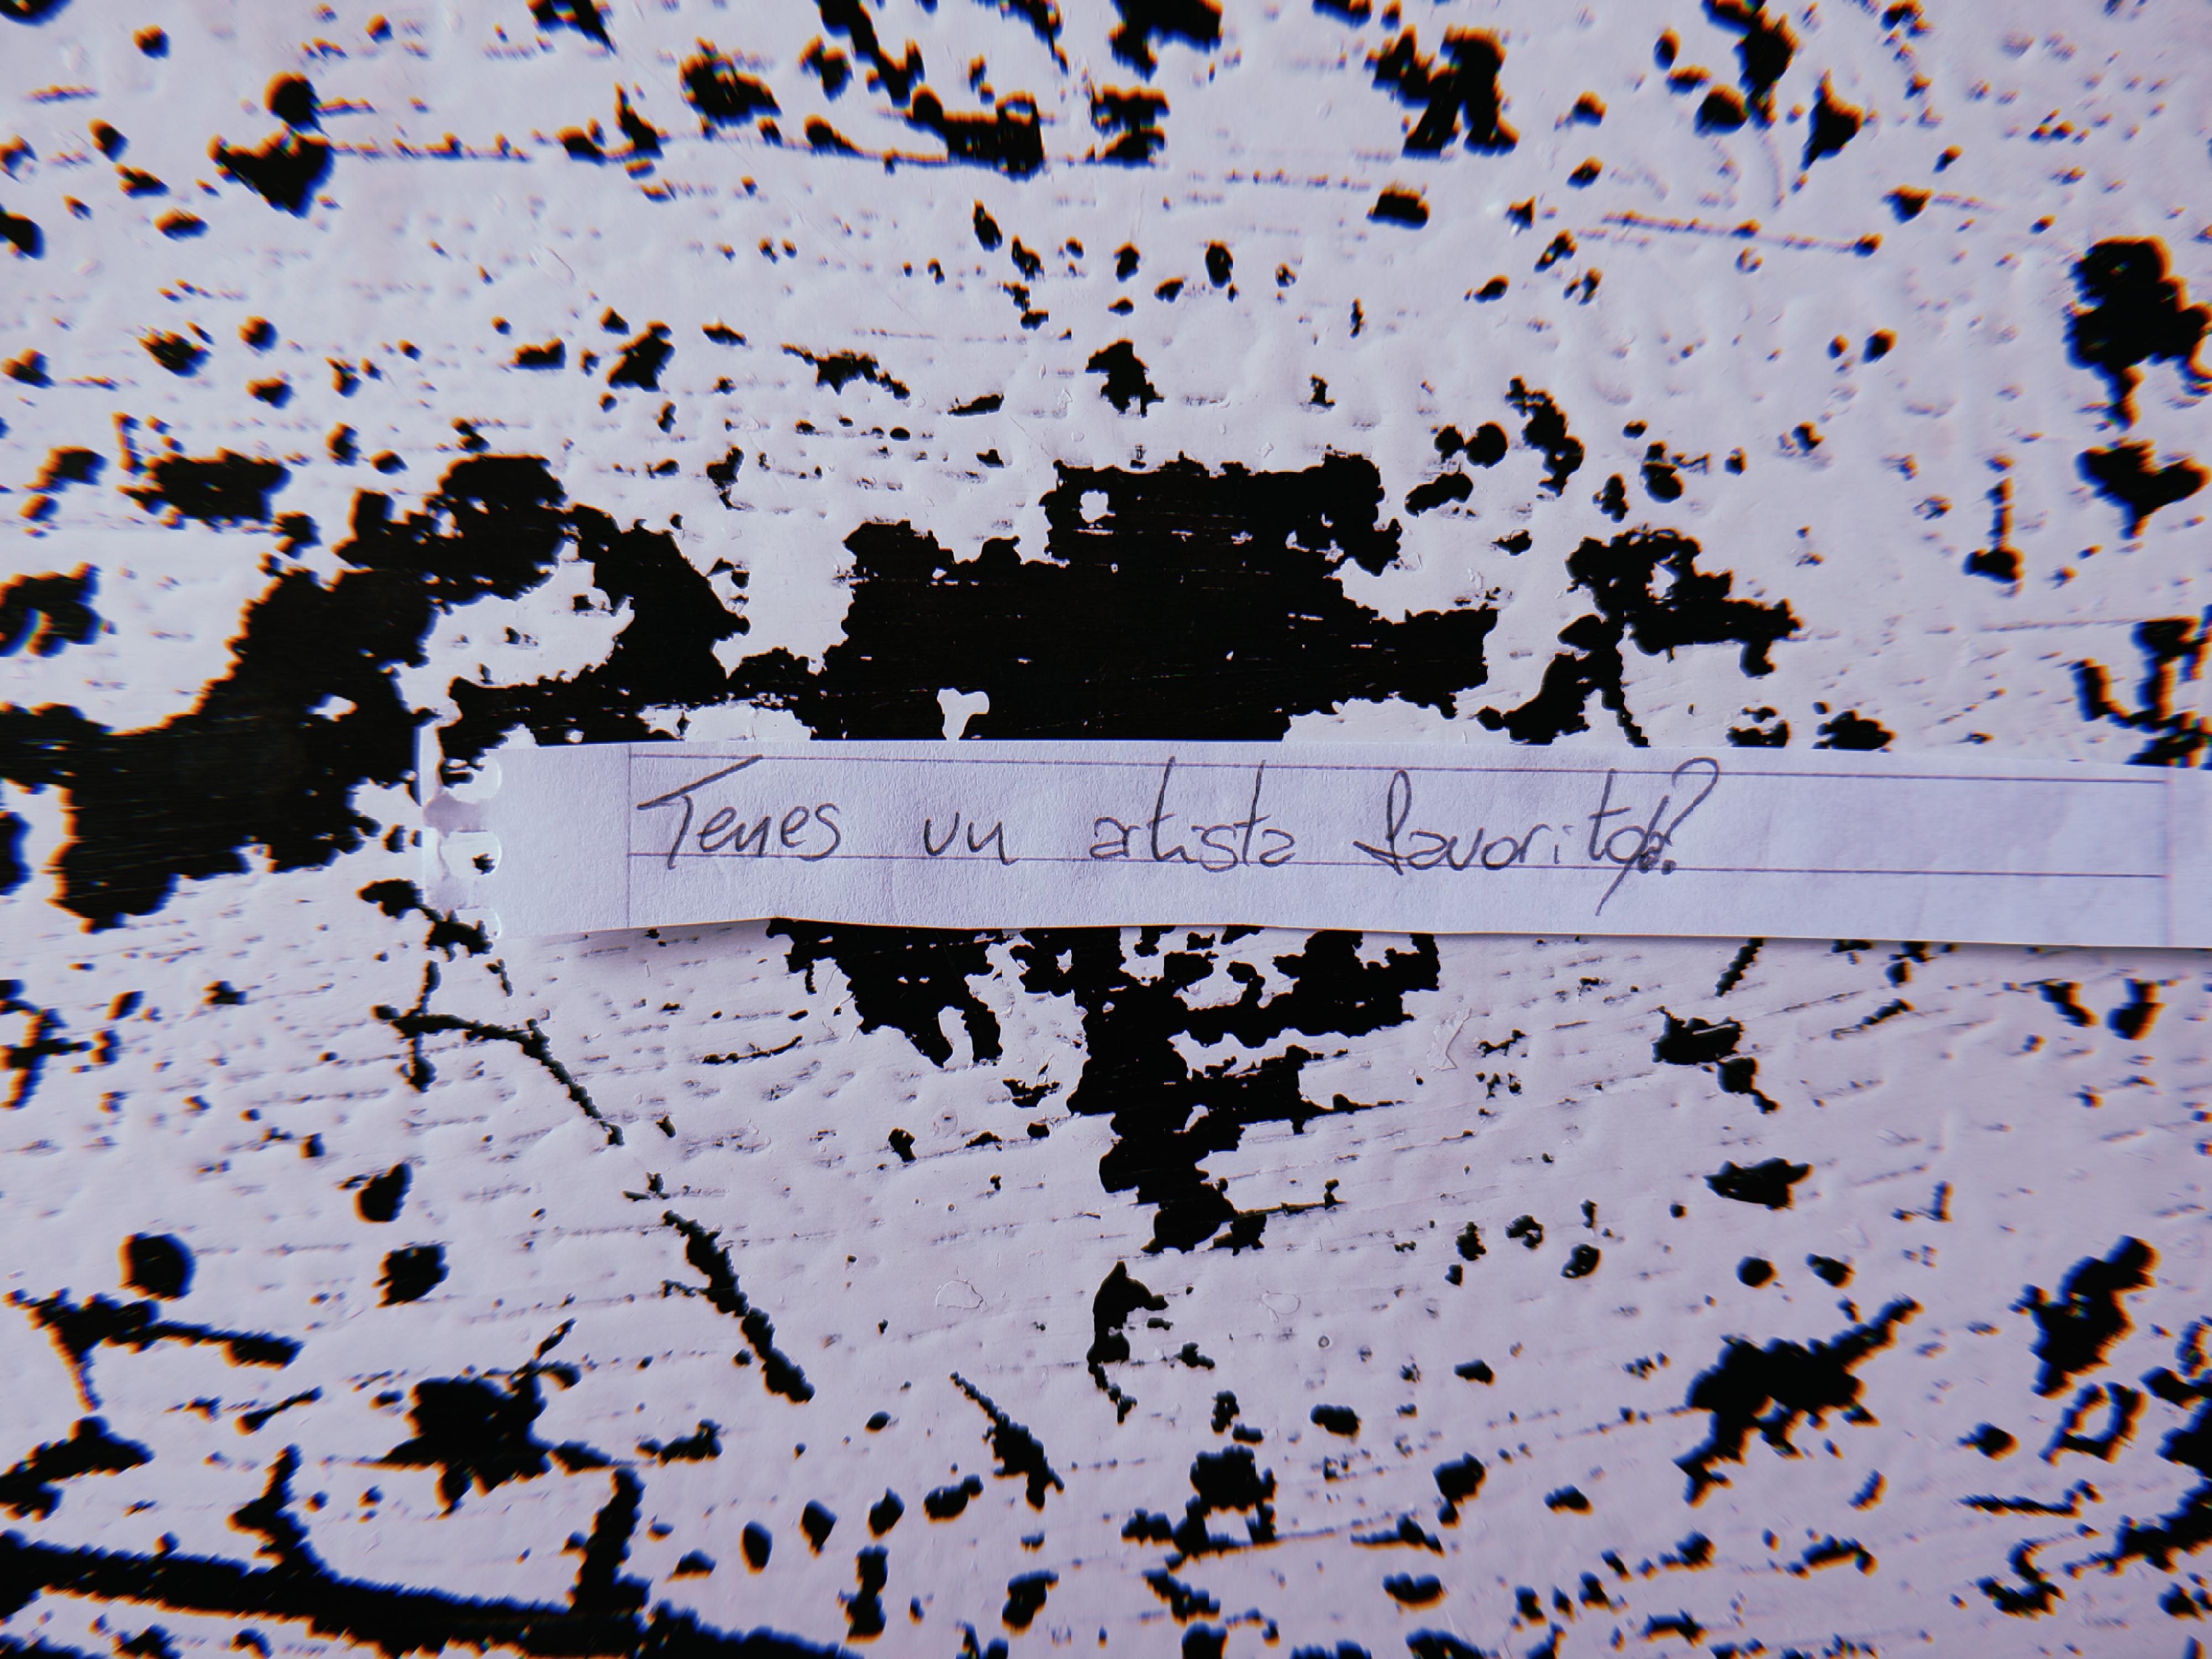 Tenes un artista favorito/a?